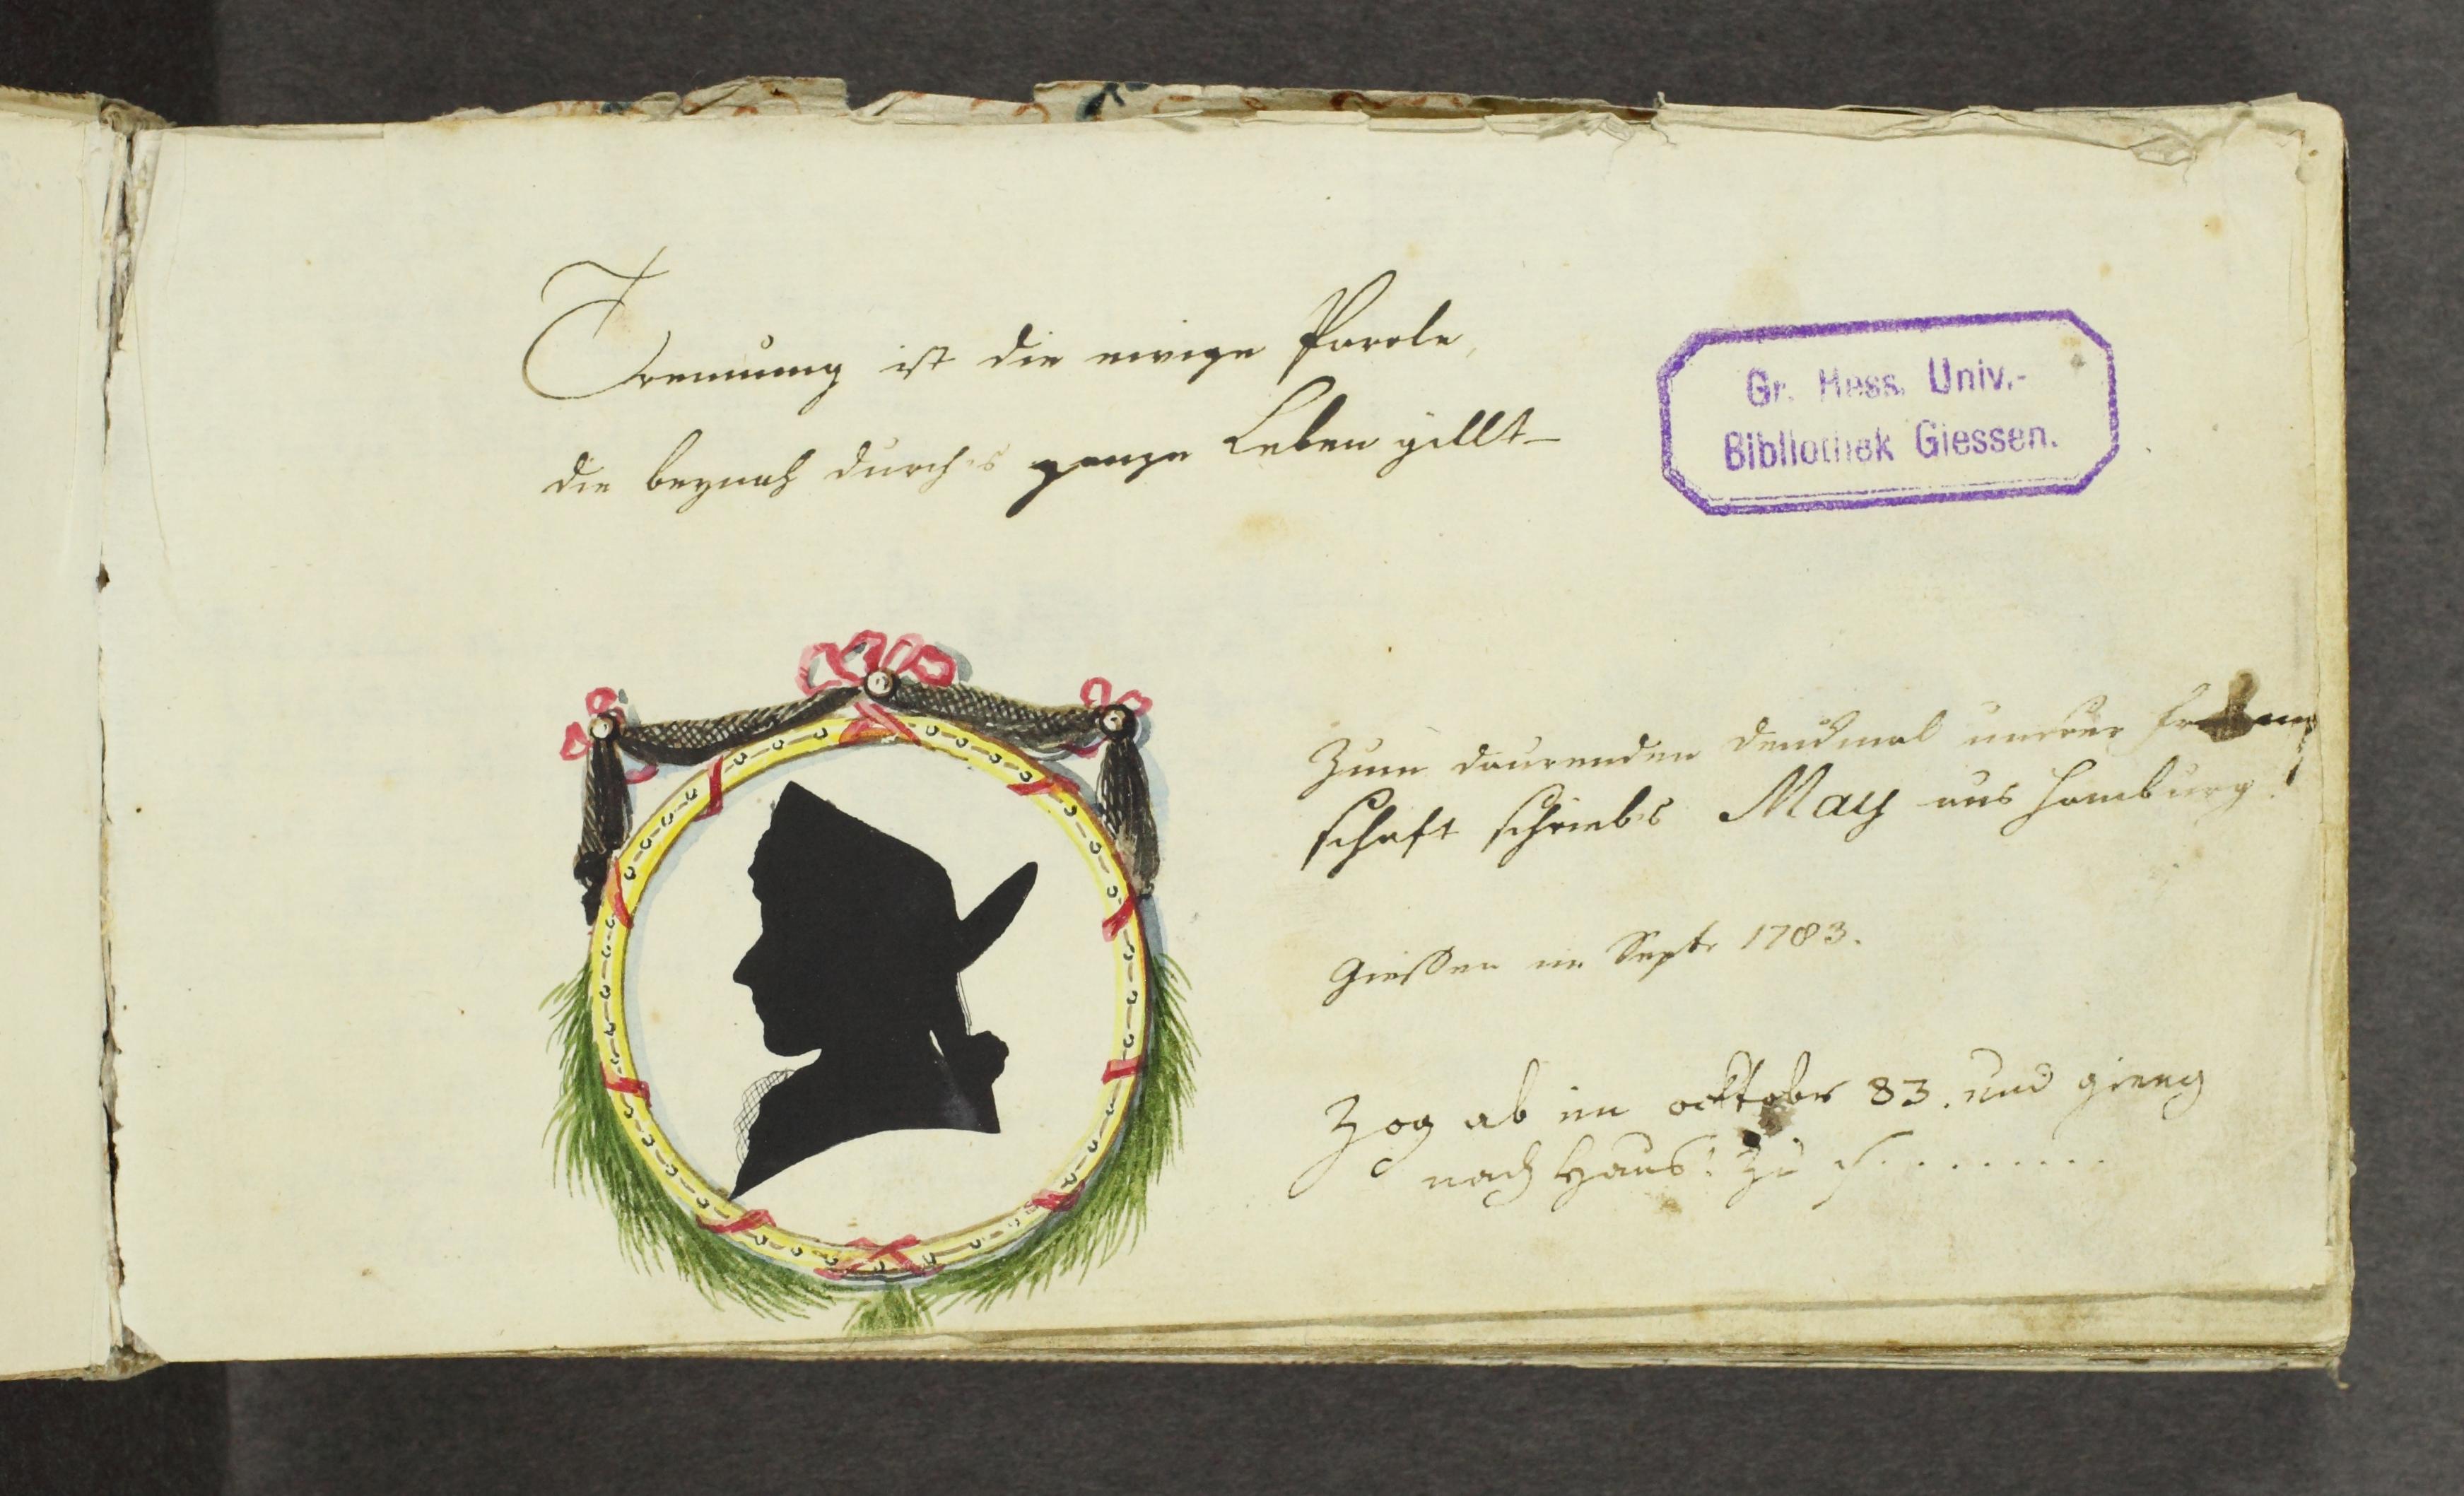 Trennung ist die ewige Parole,
die beynah durch's ganze Leben gillt –
Gr. Hess. Univ.-
Bibliothek Giessen.
Zum daurenden Denkmal unsrer
schaft schrieb's May aus Homburg.
Giessen im Septr 1783.
Zog ab im ocktobr 83. und gieng
nach Haus: zu s.........